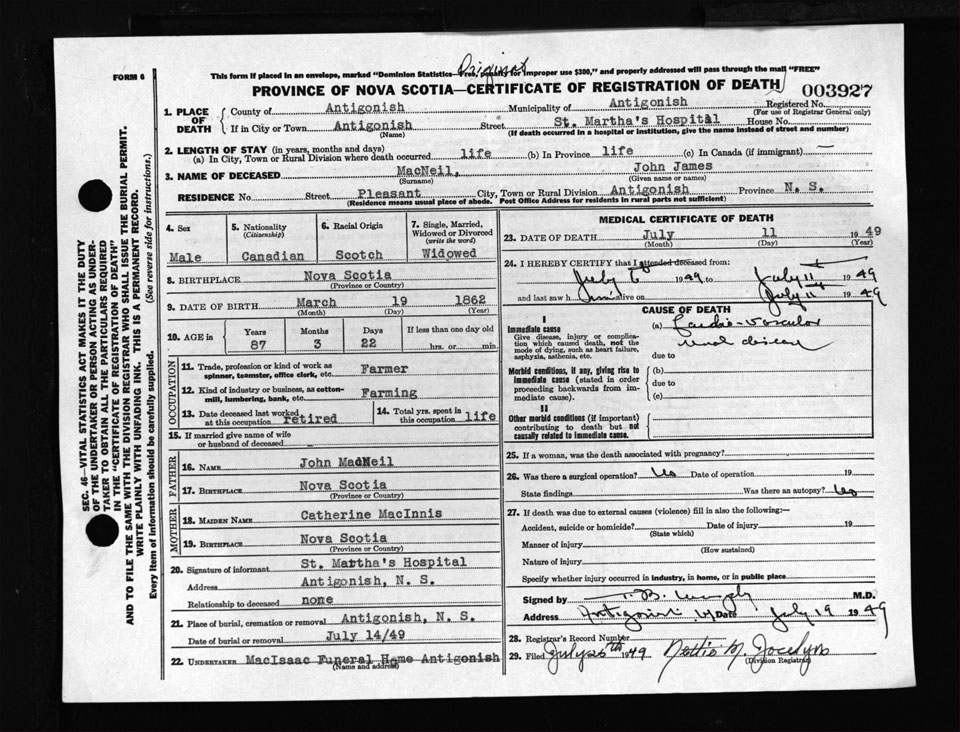 Original
FORM 6
This form if placed in an envelope, marked "Dominion Statistics—Free, penalty for improper use $300," and properly addressed will pass through the mail "FREE"
PROVINCE OF NOVA SCOTIA—CERTIFICATE OF REGISTRATION OF DEATH
003927
1. PLACE OF DEATH County of Antigonish Municipality of Antigonish Registered No.
(For use of Registrar General only)
If in City or Town Antigonish Street St. Martha's Hospital House No.
(Name) (If death occurred in a hospital or institution, give the name instead of street and number)
2. LENGTH OF STAY (in years, months and days)
(a) In City, Town or Rural Division where death occurred life (b) In Province life (c) In Canada (if immigrant) —
3. NAME OF DECEASED MacNeil, John James
(Surname) (Given name or names)
RESIDENCE No. Street Pleasant City, Town or Rural Division Antigonish Province N. S.
(Residence means usual place of abode. Post Office Address for residents in rural parts not sufficient)
SEC. 46—VITAL STATISTICS ACT MAKES IT THE DUTY
OF THE UNDERTAKER OR PERSON ACTING AS UNDER-
TAKER TO OBTAIN ALL THE PARTICULARS REQUIRED
IN THE "CERTIFICATE OF REGISTRATION OF DEATH"
AND TO FILE THE SAME WITH THE DIVISION REGISTRAR WHO SHALL ISSUE THE BURIAL PERMIT.
WRITE PLAINLY WITH UNFADING INK. THIS IS A PERMANENT RECORD.
Every item of information should be carefully supplied. (See reverse side for instructions.)
4. Sex
Male
5. Nationality
(Citizenship)
Canadian
6. Racial Origin
Scotch
7. Single, Married,
Widowed or Divorced
(write the word)
Widowed
8. BIRTHPLACE Nova Scotia
(Province or Country)
9. DATE OF BIRTH March 19 1862
(Month) (Day) (Year)
10. AGE in Years Months Days If less than one day old
87 3 22 hrs. or min.
OCCUPATION
11. Trade, profession or kind of work as
spinner, teamster, office clerk, etc. Farmer
12. Kind of industry or business, as cotton-
mill, lumbering, bank, etc. Farming
13. Date deceased last worked
at this occupation retired
14. Total yrs. spent in
this occupation life
15. If married give name of wife
or husband of deceased -
FATHER
16. NAME John MacNeil
17. BIRTHPLACE Nova Scotia
(Province or Country)
MOTHER
18. MAIDEN NAME Catherine MacInnis
19. BIRTHPLACE Nova Scotia
(Province or Country)
20. Signature of informant St. Martha's Hospital
Address Antigonish, N. S.
Relationship to deceased none
21. Place of burial, cremation or removal Antigonish, N. S.
Date of burial or removal July 14/49
22. UNDERTAKER MacIsaac Funeral Home Antigonish
(Name and address)
MEDICAL CERTIFICATE OF DEATH
23. DATE OF DEATH July 11 1949
(Month) (Day) (Year)
24. I HEREBY CERTIFY that I attended deceased from:
July 6 1949 to July 11 1949
and last saw h im alive on July 11 1949
CAUSE OF DEATH
I
Immediate cause
Give disease, injury or complica-
tion which caused death, not the
mode of dying, such as heart failure,
asphyxia, asthenia, etc.
(a) Cardio-vascular
renal disease
due to
Morbid conditions, if any, giving rise to
immediate cause (stated in order
proceeding backwards from im-
mediate cause).
(b)
due to
(c)
II
Other morbid conditions (if important)
contributing to death but not
causally related to immediate cause.
25. If a woman, was the death associated with pregnancy?
26. Was there a surgical operation? No Date of operation 19
State findings Was there an autopsy? No
27. If death was due to external causes (violence) fill in also the following:—
Accident, suicide or homicide? Date of injury 19
(State which)
Manner of injury
(How sustained)
Nature of injury
Specify whether injury occurred in industry, in home, or in public place
Signed by M.D.
Address Antigonish Date July 19 1949
28. Registrar's Record Number
29. Filed July 20th 1949 Nettie M. Jocelyn
(Division Registrar)